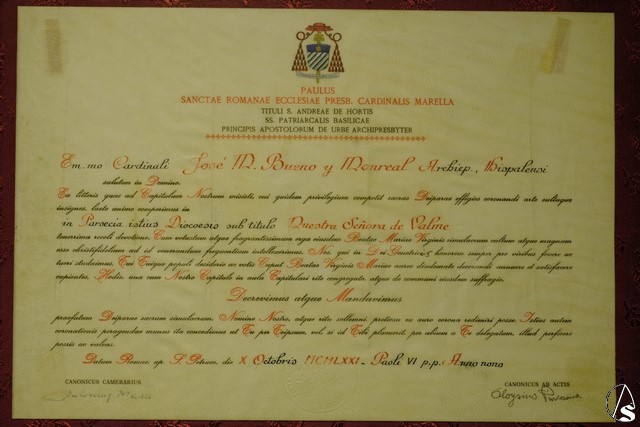 PAULUS
SANCTAE ROMANAE ECCLESIAE PRESB. CARDINALIS MARELLA
TITULI S. ANDREAE DE HORTIS
SS. PATRIARCALIS BASILICAE
PRINCIPIS APOSTOLORUM DE URBE ARCHIPRESBYTER
Em.mo Cardinali José M. Bueno y Monreal Archiep., Hispalensi
salutem in Domino.
Ex litteris quas ad Capitulum Nostrum misisti, cui quidem privilegium competit sacras Deiparae effigies coronandi
insignes, laeto animo comperimus in
in Paroecia istius Dioceesis sub titulo Nuestra Señora de Valme
tenerrima recoli devotione. Cum vetustum atque fragrantissimum erga eiusdem Beatae Mariae Virginis simulacrum cultum atque magnam
Nos, qui in Dei Genitricis honorem semper pro viribus fovere ac
tueri studuimus, Tui Tuique populi desiderio ac votis Caput Beatae Virginis Mariae aureo diademate decorandi annuere et satisfacere
cupientes, Hodie, una cum Nostro Capitulo in aula Capitulari rite congregato, atque de communi eiusdem suffragio,
Decrevimus atque Mandavimus
praefatum Deiparae sacrum simulacrum, Nomine Nostro, atque ritu sollemni, pretioso ex auro corona redimiri posse. Istius autem
coronationis peragendae munus ita concedimus ut Tu per Teipsum, vel, si id Tibi placuerit, per alium a Te delegatum, illud perficere
possis ac valeas.
Datum Romae, ap. S. Petrum, die X Octobris MCMLXXI - Paoli VI p.p. Anno nono
CANONICUS CAMERARIUS CANONICUS AB ACTIS
Aloysius